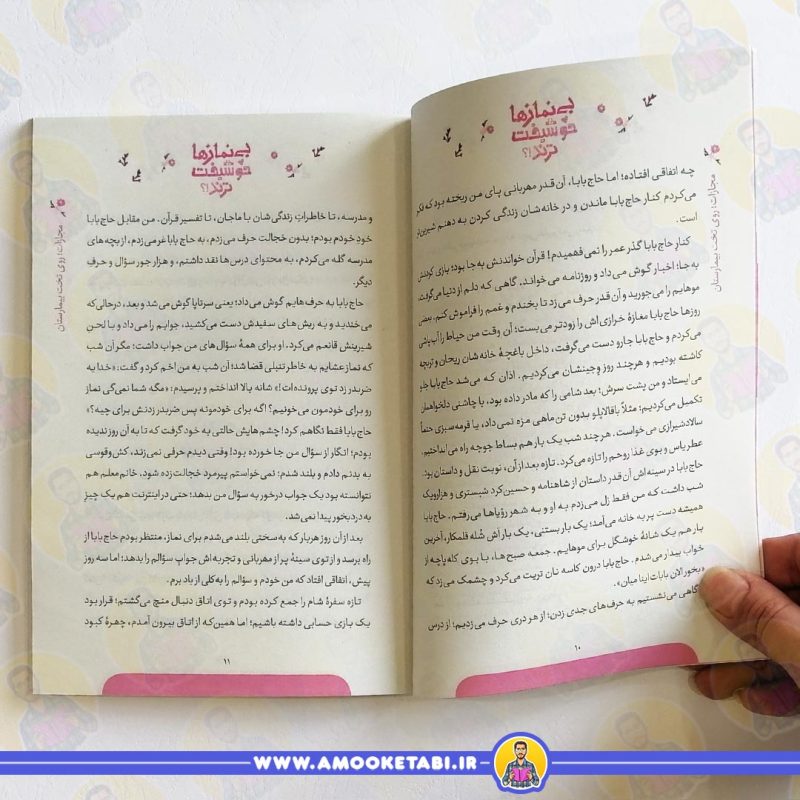 بی‌نمازها
خوشبخت
ترند؟!
مجازات؛ روی تخت بیمارستان
چه اتفاقی افتاده؛ اما حاج‌بابا، آن قدر مهربانی پای من ریخته بود که فکر
می‌کردم کنار حاج‌بابا ماندن و در خانه‌شان زندگی کردن به دهنم شیرین‌تر
است.
کنار حاج‌بابا گذر عمر را نمی‌فهمیدم! قرآن خواندنش به جا بود؛ بازی کردنش
به جا؛ اخبار گوش می‌داد و روزنامه می‌خواند. گاهی که دلم از دنیا می‌گرفت،
موهایم را می‌جورید و آن قدر حرف می‌زد تا بخندم و غمم را فراموش کنم. بعضی
روزها حاج‌بابا مغازهٔ خرازی‌اش را زودتر می‌بست؛ آن وقت من حیاط را آب‌پاشی
می‌کردم و حاج‌بابا جارو دست می‌گرفت، داخل باغچهٔ خانه‌شان ریحان و تربچه
کاشته بودیم و هرچند روز وجینشان می‌کردیم. اذان که می‌شد حاج‌بابا جلو
می‌ایستاد و من پشت سرش؛ بعد شامی را که مادر داده بود، با چاشنی دلخواهمان
تکمیل می‌کردیم؛ مثلاً باقالاپلو بدون تن ماهی مزه نمی‌داد، یا قرمه‌سبزی حتماً
سالاد شیرازی می‌خواست. هرچند شب یک بار هم بساط جوجه راه می‌انداختیم.
عطر یاس و بوی غذا روحم را تازه می‌کرد. تازه بعد از آن، نوبت نقل و داستان بود.
حاج‌بابا در سینه‌اش آن قدر داستان از شاهنامه و حسین کرد شبستری و هزارویک
شب داشت که من فقط زل می‌زدم به او و به شهر رؤیاها می‌رفتم. حاج‌بابا
همیشه دست پر به خانه می‌آمد؛ یک بار بستنی، یک بار آش شُله قلمکار، آخرین
بار هم یک شانهٔ خوشگل برای موهایم. جمعه صبح‌ها، با بوی کله‌پاچه از
خواب بیدار می‌شدم. حاج‌بابا درون کاسه نان تریت می‌کرد و چشمک می‌زد که
«بخور الان بابات اینا میان».
گاهی می‌نشستیم به حرف‌های جدی زدن؛ از هر دری حرف می‌زدیم؛ از درس
۱۰
بی‌نمازها
خوشبخت
ترند؟!
مجازات؛ روی تخت بیمارستان
و مدرسه، تا خاطرات زندگی‌شان با ماجان، تا تفسیر قرآن. من مقابل حاج‌بابا
خودِ خودم بودم؛ بدون خجالت حرف می‌زدم، به حاج‌بابا غر می‌زدم، از بچه‌های
مدرسه گله می‌کردم، به محتوای درس‌ها نقد داشتم، و هزار جور سؤال و حرف
دیگر.
حاج‌بابا به حرف‌هایم گوش می‌داد؛ یعنی سرتاپا گوش می‌شد و بعد، درحالی‌که
می‌خندید و به ریش‌های سفیدش دست می‌کشید، جوابم را می‌داد و با لحن
شیرینش قانعم می‌کرد. او برای همهٔ سؤال‌های من جواب داشت؛ مگر آن شب
که نماز عشایم به خاطر تنبلی قضا شد؛ آن شب به من اخم کرد و گفت: «خدا یه
ضربدر زد توی پرونده‌ات!» شانه بالا انداختم و پرسیدم: «مگه شما نمی‌گی نماز
رو برای خودمون می‌خونیم؟ اگه برای خودمونه پس ضربدر زدنش برای چیه؟»
حاج‌بابا فقط نگاهم کرد! چشم‌هایش حالتی به خود گرفت که تا به آن روز ندیده
بودم؛ انگار از سؤال من جا خورده بود! وقتی دیدم حرفی نمی‌زند، کش‌وقوسی
به بدنم دادم و بلند شدم؛ نمی‌خواستم پیرمرد خجالت‌زده شود. خانم معلم هم
نتوانسته بود یک جواب درخور به سؤال من بدهد؛ حتی در اینترنت هم یک چیزِ
به دردبخور پیدا نمی‌شد.
بعد از آن روز هربار که به سختی بلند می‌شدم برای نماز، منتظر بودم حاج‌بابا از
راه برسد و از توی سینهٔ پر از مهربانی و تجربه‌اش جواب سؤالم را بدهد؛ اما سه روز
پیش، اتفاقی افتاد که من خودم و سؤالم را به‌کلی از یاد برم.
تازه سفرهٔ شام را جمع کرده بودم و توی اتاق دنبال منچ می‌گشتم؛ قرار بود
یک بازی حسابی داشته باشیم؛ اما همین‌که از اتاق بیرون آمدم، چهرهٔ کبود
۱۱
WWW.AMOOKETABI.IR